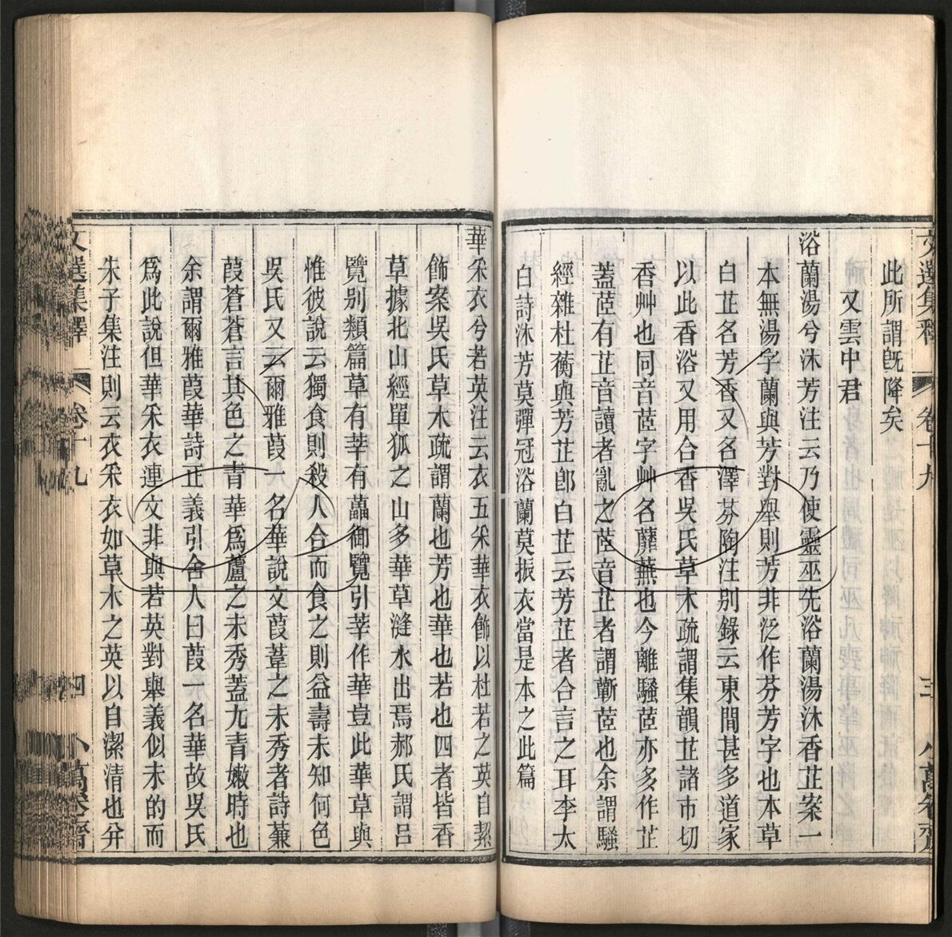 文選集釋 卷十九 三 八萬卷齋
此所謂旣降矣
又雲中君
浴蘭湯兮沐芳注云乃使靈巫先浴蘭湯沐香芷案一
本無湯字蘭與芳對舉則芳非泛作芬芳字也本草
白芷名芳香又名澤芬陶注别錄云東間甚多道家
以此香浴又用合香吳氏草木疏謂集韻芷諸市切
香艸也同音茝字艸名蘼蕪也今離騷茝亦多作芷
蓋茝有芷音讀者亂之茝音芷者謂蘄茝也余謂騷
經雜杜蘅與芳芷卽白芷云芳芷者合言之耳李太
白詩沐芳莫彈冠浴蘭莫振衣當是本之此篇
華采衣兮若英注云衣五采華衣飾以杜若之英自絜
飾案吳氏草木疏謂蘭也芳也華也若也四者皆香
草據北山經單狐之山多華草漨水出焉郝氏謂呂
覽别類篇草有莘有藟御覽引莘作華豈此華草與
惟彼說云獨食則殺人合而食之則益壽未知何色
吳氏又云爾雅葭一名華說文葭葦之未秀者詩蒹
葭蒼蒼言其色之青華爲蘆之未秀蓋尢青嫩時也
余謂爾雅葭華詩正義引舍人曰葭一名華故吳氏
爲此說但華采衣連文非與若英對舉義似未的而
朱子集注則云衣采衣如草木之英以自潔清也幷
文選集釋 卷十九 四 八萬卷齋